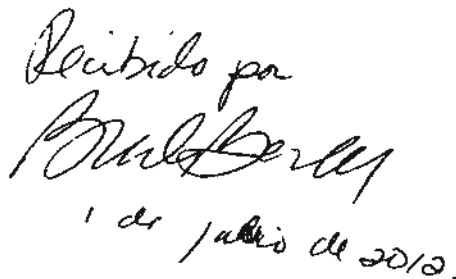 Recibido por
1 de julio de 2012.